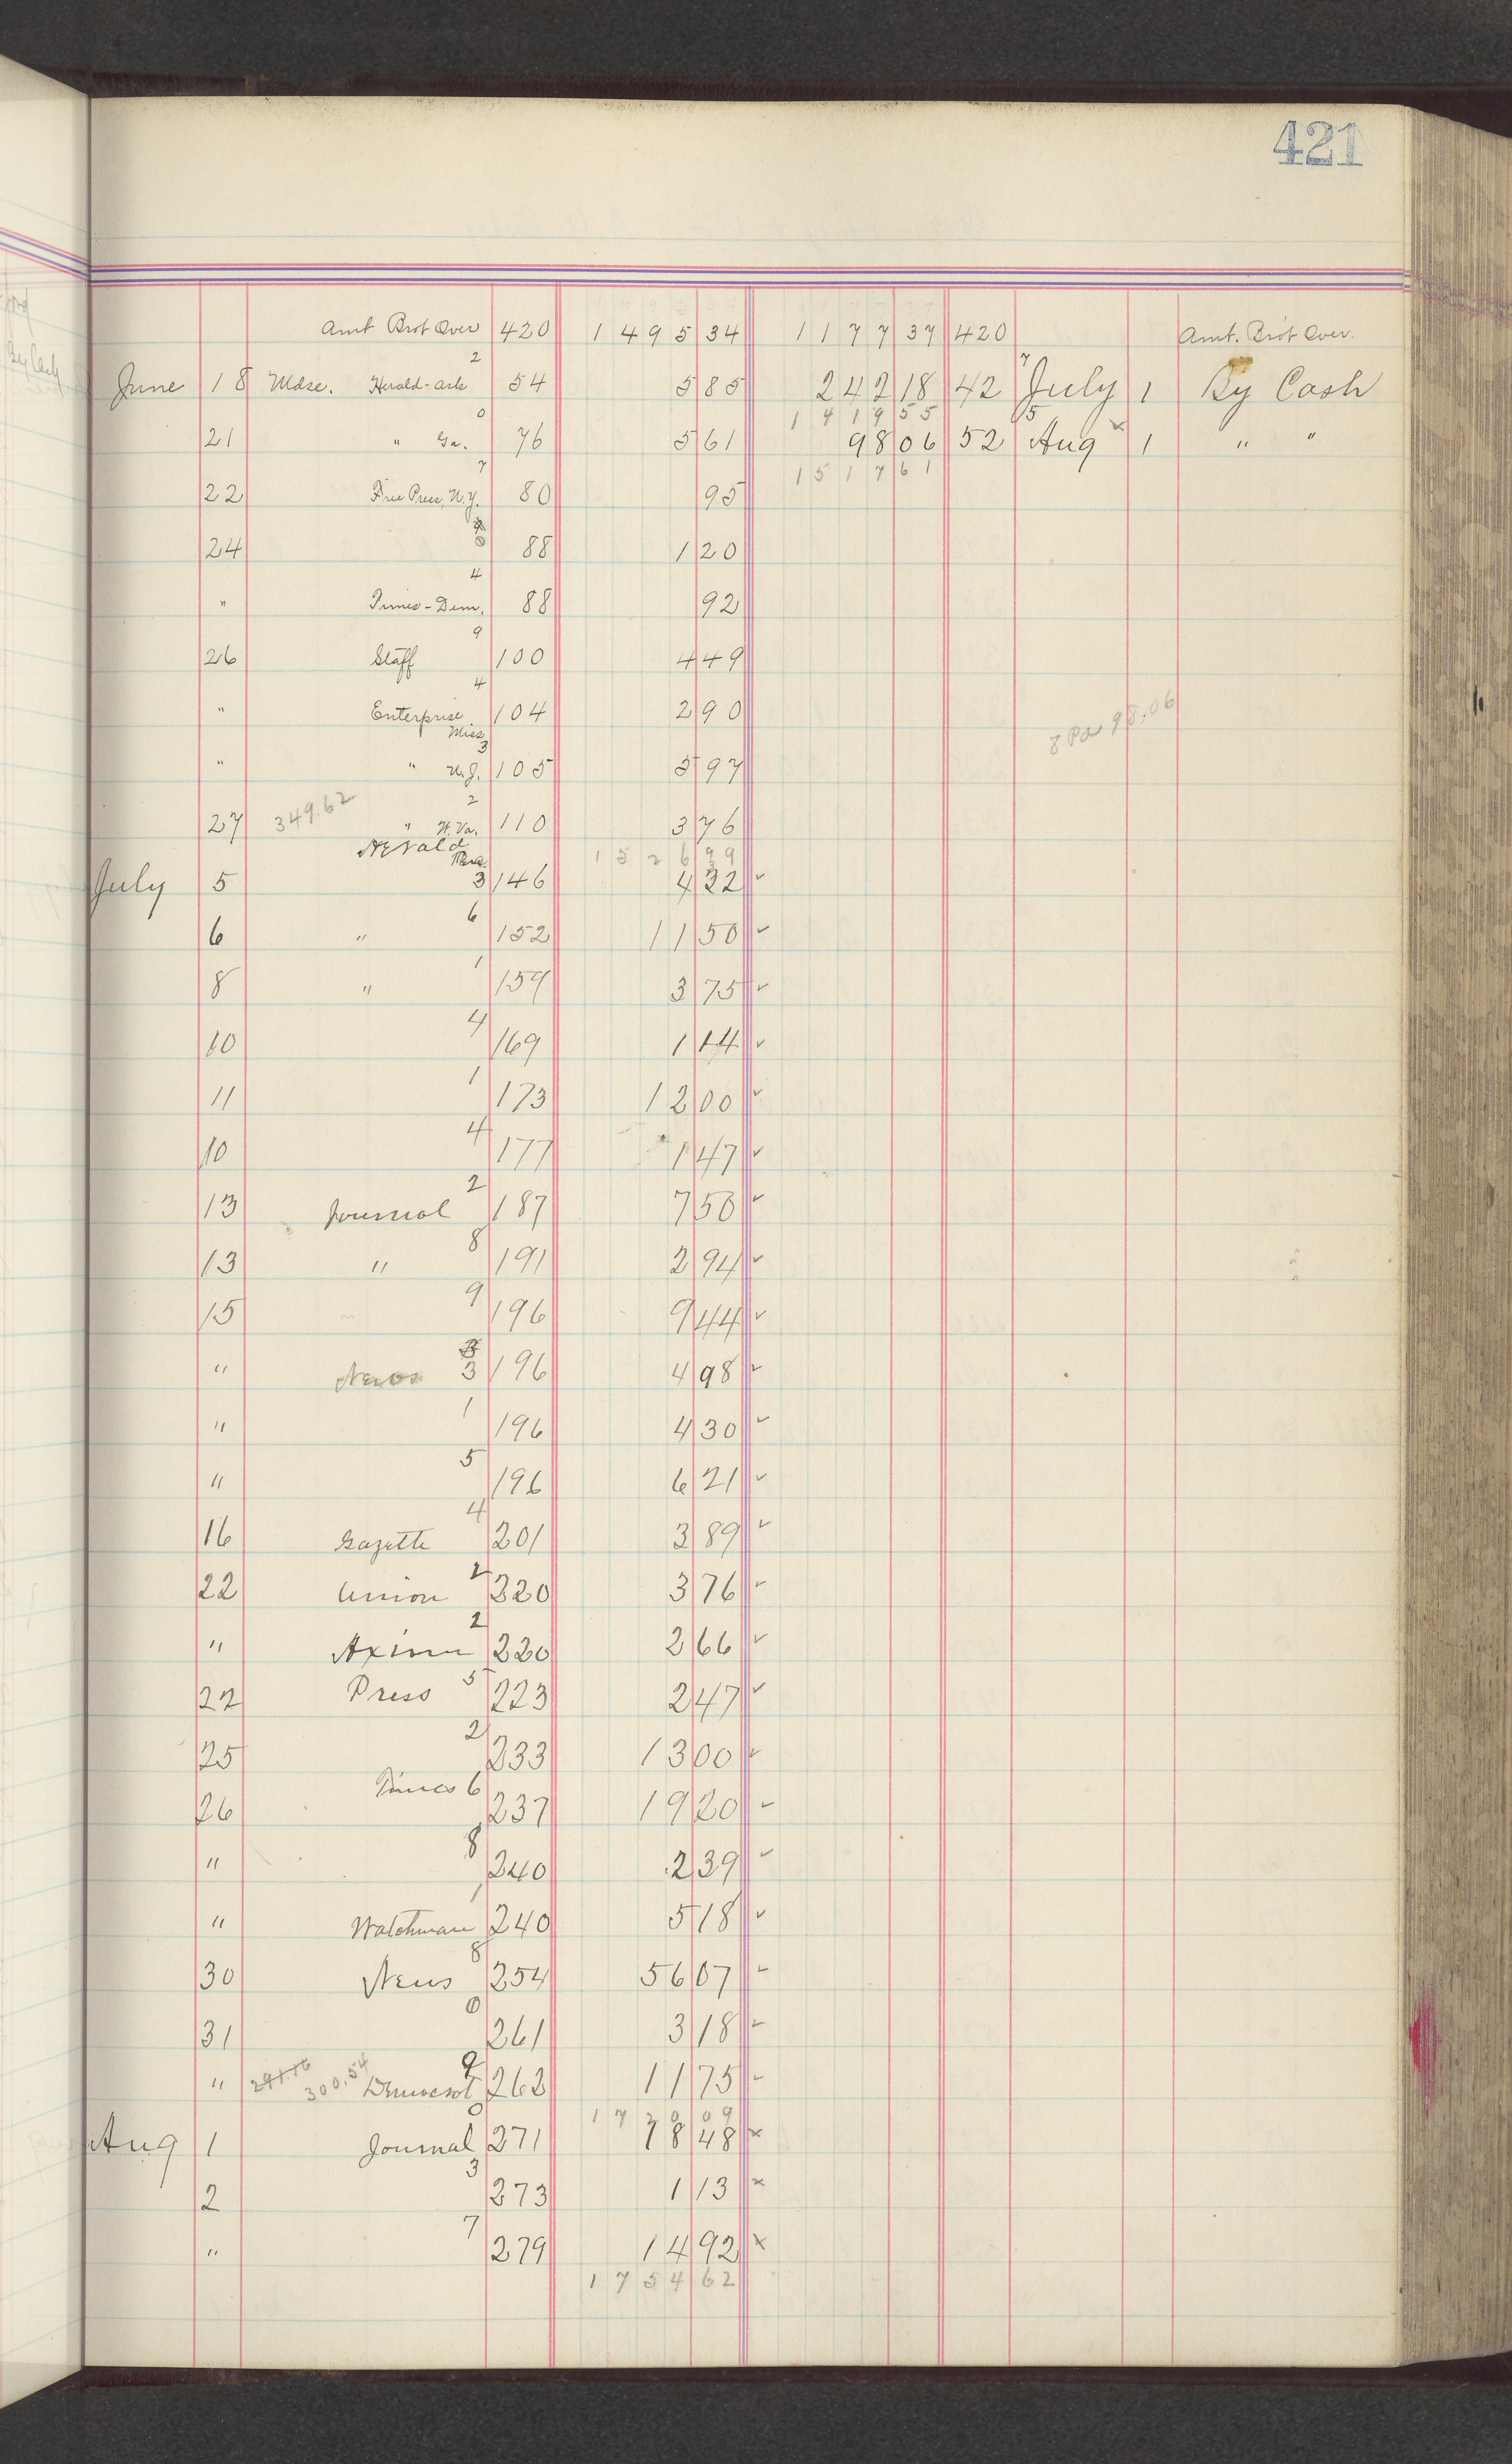 421
Amt Brot Over 420 1495 34 1177 37 420 Amt. Brot Over.
June 18 Mdse. Herald-Ark 2 54 5 85 242 18 42 7 July 1 By Cash
1419 55
21 " Ga. 0 76 5 61 98 06 52 5 Aug 1 " "
1517 61
22 Free Press, N.Y. 7 80 95
24 0 88 1 20
" Times-Dem. 4 88 92
26 Staff 9 100 4 49
" Enterprise Miss 4 104 2 90
8 Pa 98.06
" " N.J. 3 105 5 97
27 349.62 " W.Va. 2 110 3 76
1526 99
July 5 Herald 3 146 4 32 ✓
6 " 6 152 11 50 ✓
8 " 1 159 3 75 ✓
10 4 169 1 14 ✓
11 1 173 12 00 ✓
10 4 177 1 47 ✓
13 Journal 2 187 7 50 ✓
13 " 8 191 2 94 ✓
15 9 196 9 44 ✓
" News 3 196 4 98 ✓
" 1 196 4 30 ✓
" 5 196 6 21 ✓
16 Gazette 4 201 3 89 ✓
22 Union 2 220 3 76 ✓
" Axiom 2 220 2 66 ✓
22 Press 5 223 2 47 ✓
25 2 233 13 00 ✓
26 Times 6 237 19 20 ✓
" 8 240 2 39 ✓
" Watchman 1 240 5 18 ✓
30 News 8 254 56 07 ✓
31 0 261 3 18 ✓
" 291.16 300.54 Democrat 9 262 11 75 ✓
1720 09
Aug 1 Journal 0 271 18 48 x
2 3 273 1 13 x
" 7 279 14 92 x
1754 62